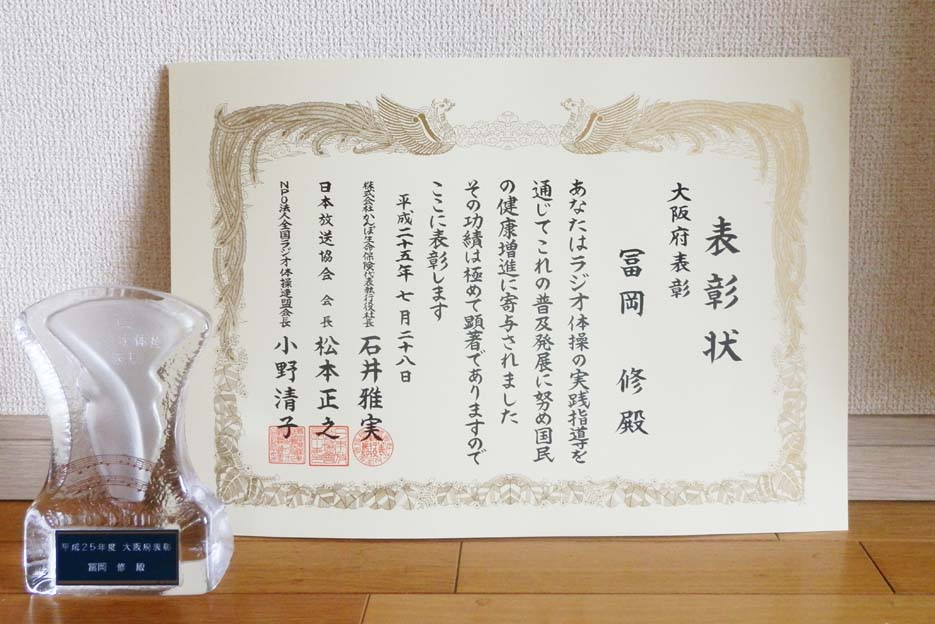 表彰状
冨岡 修 殿
大阪府表彰
あなたはラジオ体操の実践指導を
通じてこれの普及発展に努め国民
の健康増進に寄与されました
その功績は極めて顕著でありますので
ここに表彰します
平成二十五年 七月二十八日
株式会社かんぽ生命保険代表執行役社長 石井雅実
日本放送協会 会長 松本正之
NPO法人全国ラジオ体操連盟会長 小野清子
平成25年度 大阪府表彰
冨岡 修 殿